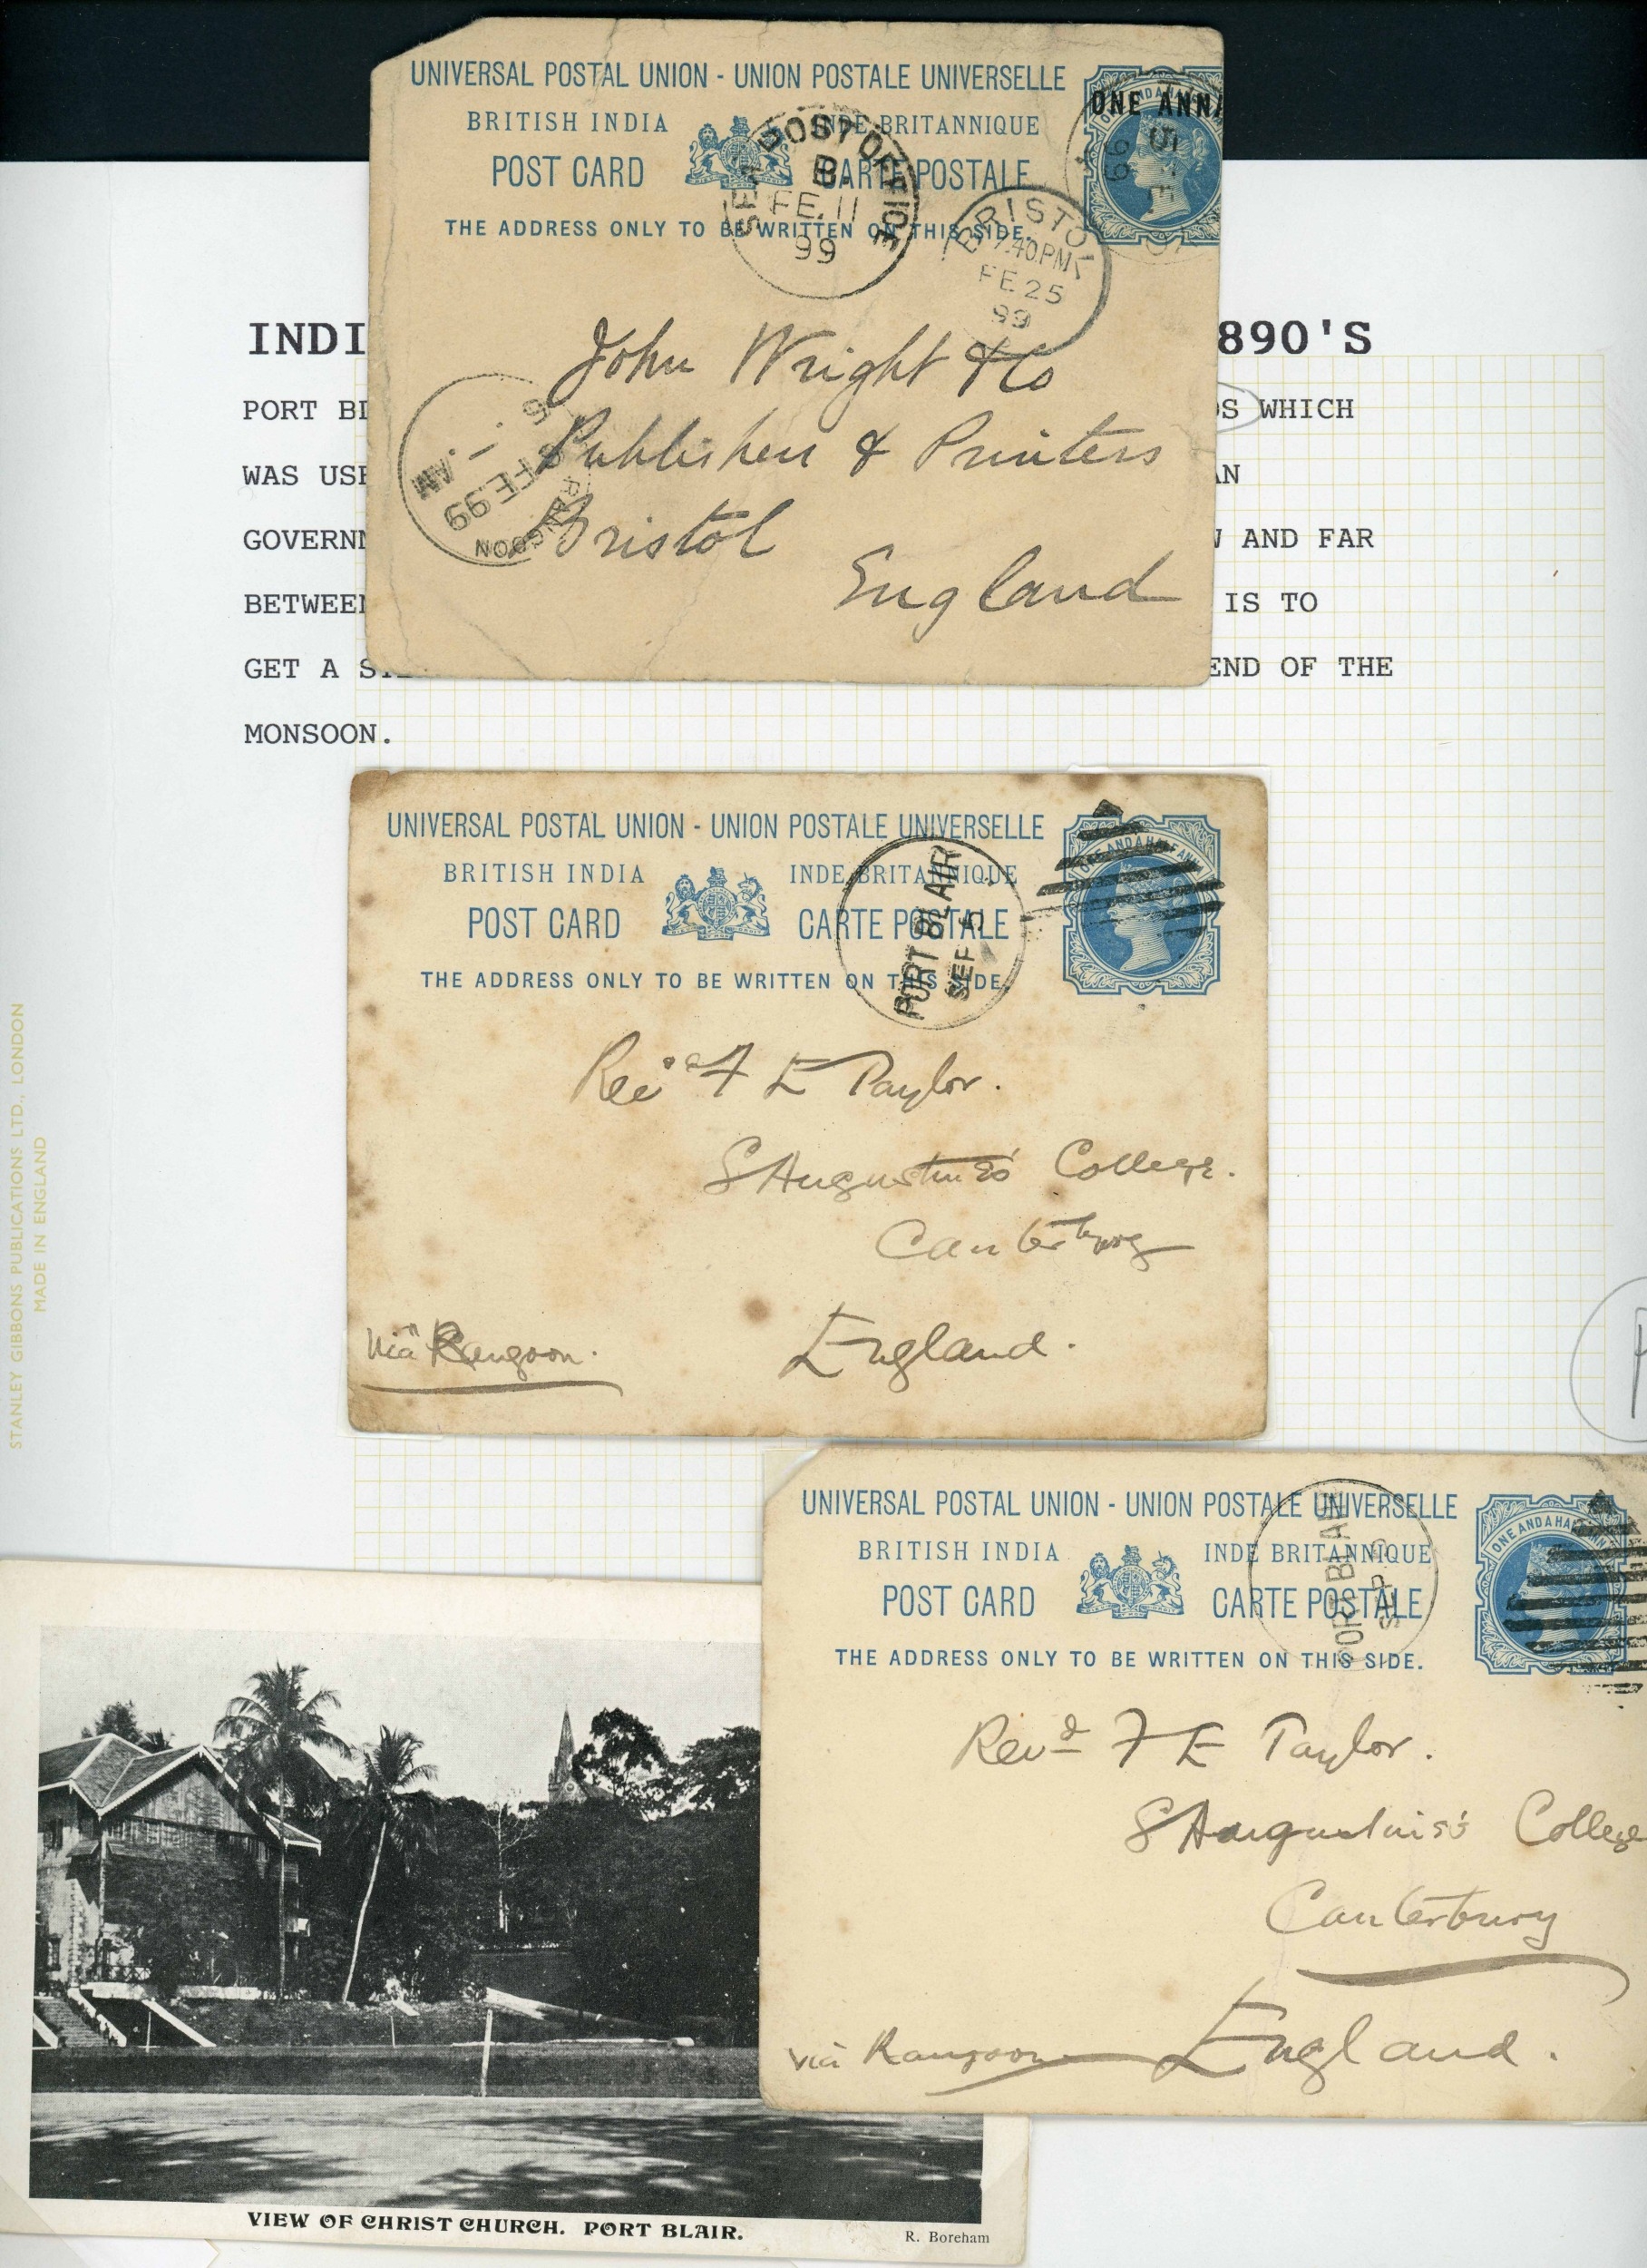 UNIVERSAL POSTAL UNION - UNION POSTALE UNIVERSELLE
BRITISH INDIA INDE BRITANNIQUE
POST CARD CARTE POSTALE
THE ADDRESS ONLY TO BE WRITTEN ON THIS SIDE.
ONE ANNA
SEA POST OFFICE
B
FE.11
99
BRISTOL
7.40PM
FE 25
99
John Wright & Co
Publishers & Printers
Bristol
England
RANGOON
FE 99
AM
INDI 890'S
PORT BL DS WHICH
WAS USE AN
GOVERNM W AND FAR
BETWEEN IS TO
GET A S END OF THE
MONSOON.
UNIVERSAL POSTAL UNION - UNION POSTALE UNIVERSELLE
BRITISH INDIA INDE BRITANNIQUE
POST CARD CARTE POSTALE
THE ADDRESS ONLY TO BE WRITTEN ON THIS SIDE.
ONE AND A HALF ANNA
PORT BLAIR
SEP 5
Revd F E Taylor.
St Augustine's College.
Canterbury
England.
via Rangoon.
STANLEY GIBBONS PUBLICATIONS LTD., LONDON
MADE IN ENGLAND
UNIVERSAL POSTAL UNION - UNION POSTALE UNIVERSELLE
BRITISH INDIA INDE BRITANNIQUE
POST CARD CARTE POSTALE
THE ADDRESS ONLY TO BE WRITTEN ON THIS SIDE.
ONE AND A HALF ANNA
PORT BLAIR
Revd F E Taylor.
St Augustine's College
Canterbury
England.
via Rangoon
VIEW OF CHRIST CHURCH. PORT BLAIR.
R. Boreham